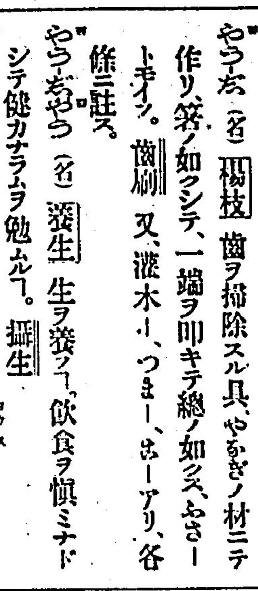 やうーじ（名）楊枝 齒ヲ掃除スル具、やなぎノ材ニテ
作リ、箸ノ如クシテ、一端ヲ叩キテ總ノ如クス、ふさー
トモイフ。齒刷 又、灌木ー、つまー、ほーアリ、各
條ニ註ス。
やうーじやう（名）養生 生ヲ養フヿ。飮食ヲ愼ミナド
シテ健カナラムヲ勉ムルヿ。攝生